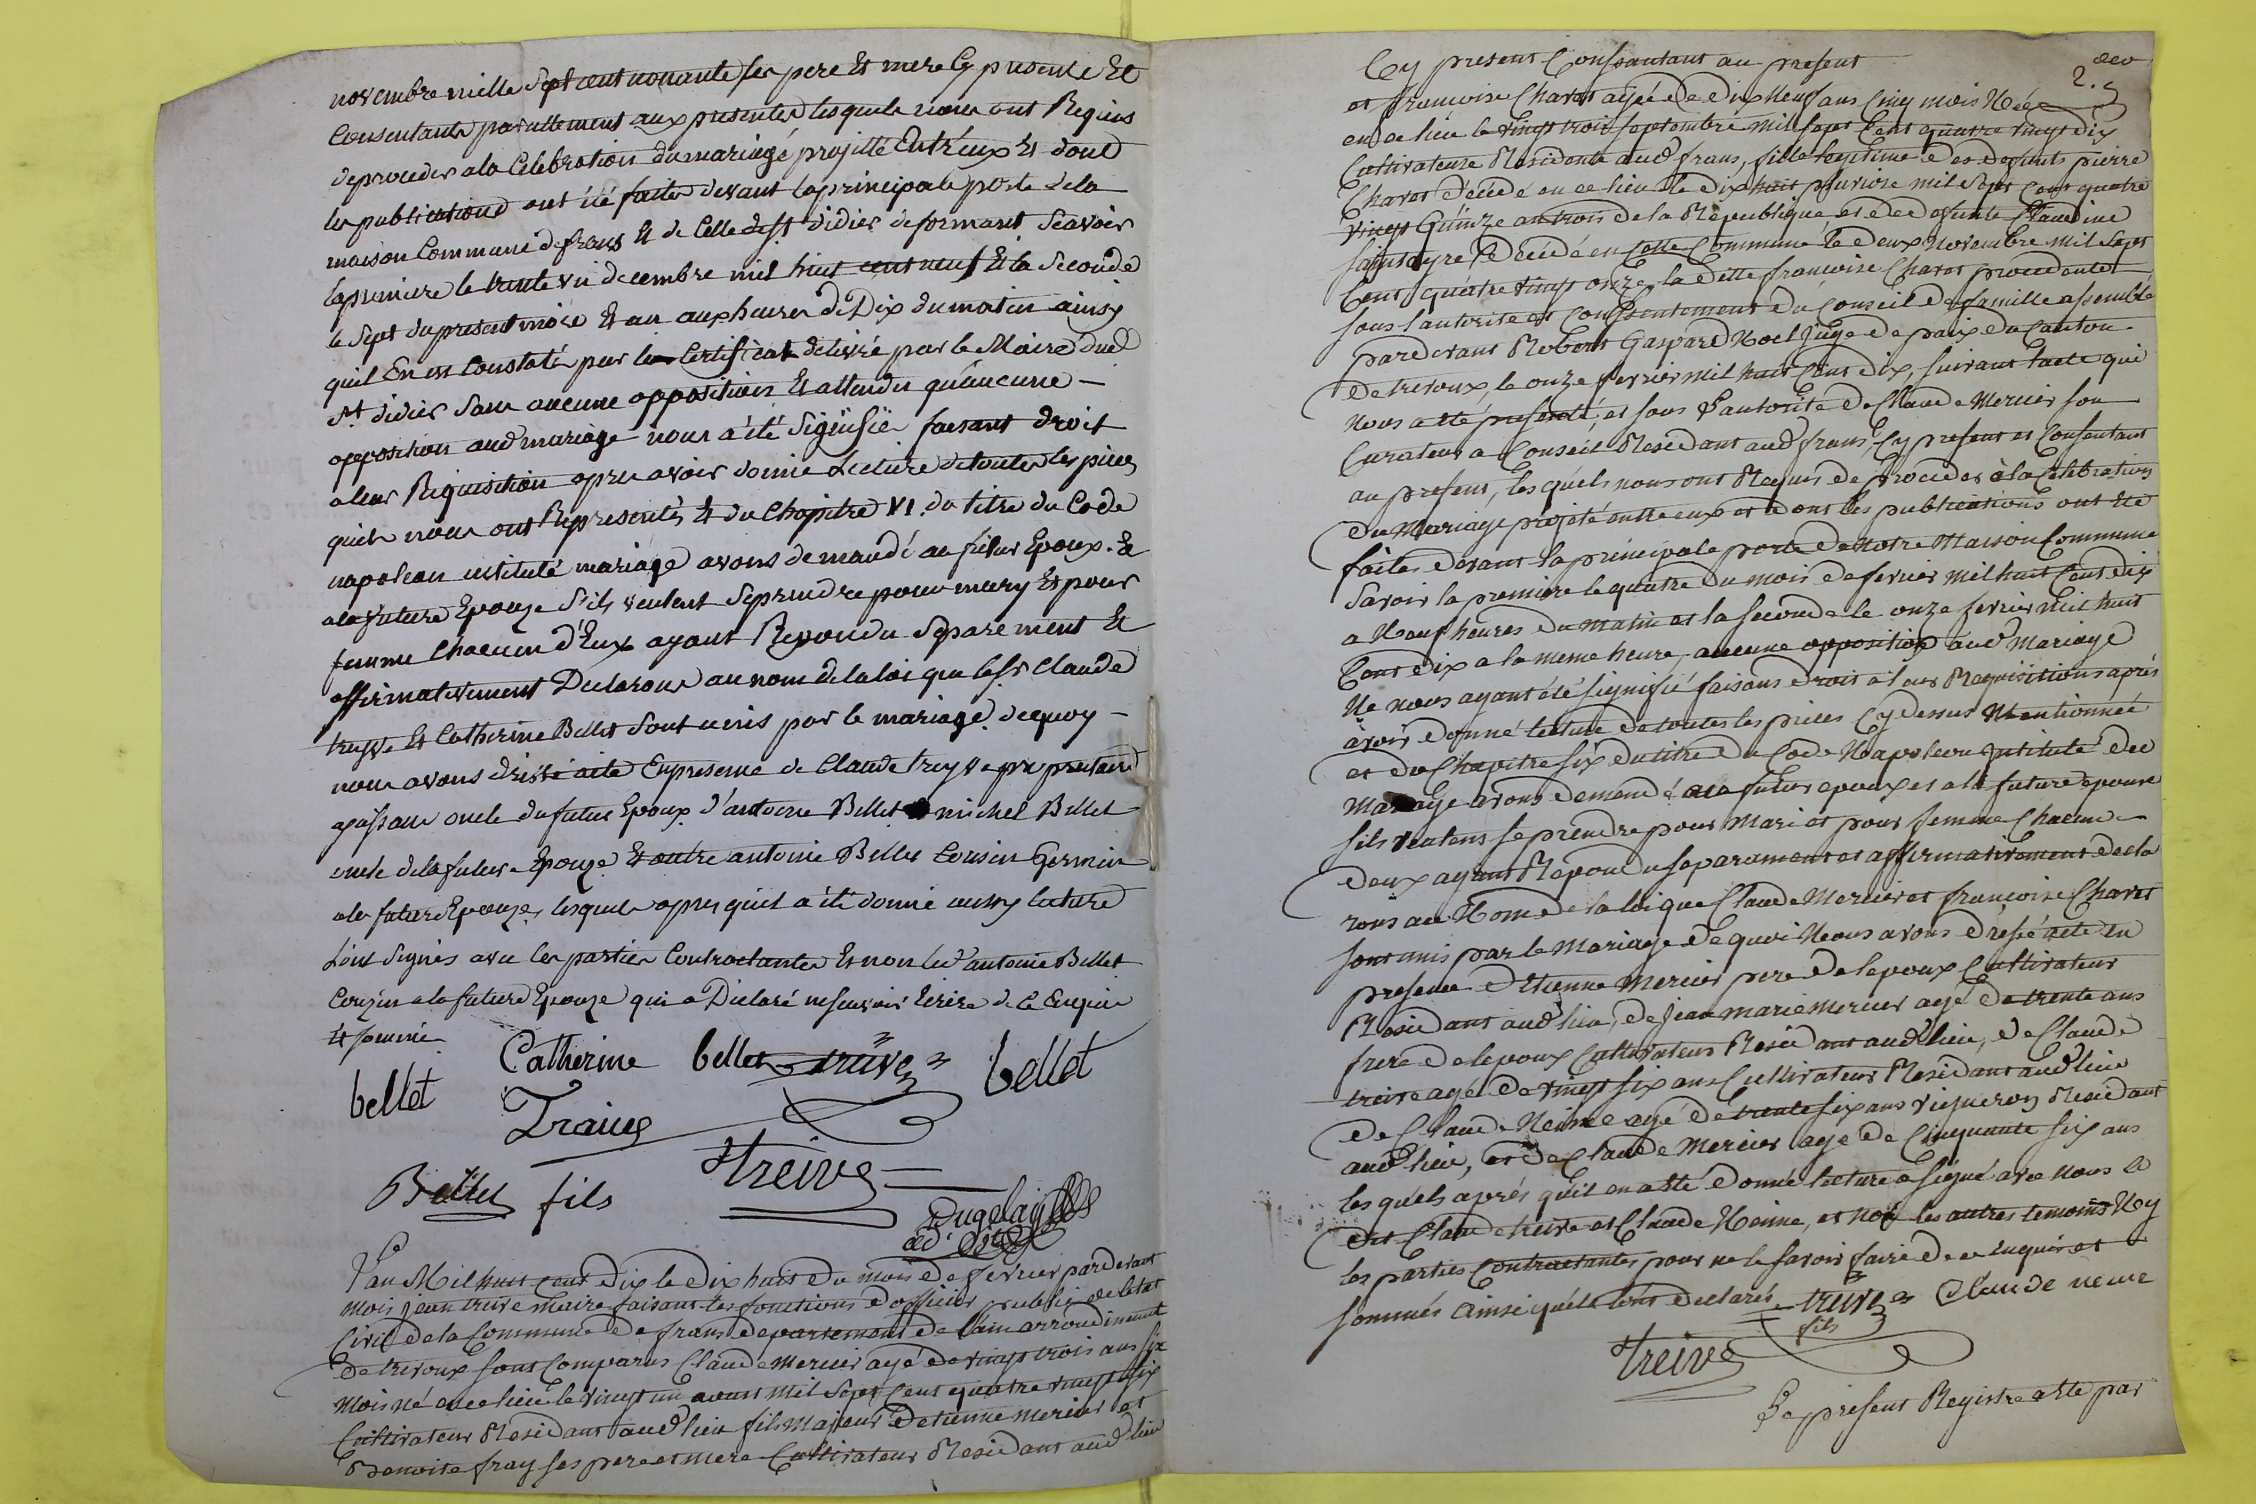 novembre mille Sept cent nonante ses pere Et mere Cy presents Et
Consentants pareillement aux presentes lesquels nous ont Requis
de proceder a la Celebration du mariage projitté Entréux Et dont
les publications ont été faites devant la principale porte de la
maison Commune de frans Et de Celle de St didier de formans Scavoir
la premiere le trente un decembre mil huit cent neuf Et la Seconde
le Sept du present mois Et an aux heures de Dix du matin ainsy
quil En est Constaté par les Certificat delivré par le Maire dud
St didier Sans aucune opposition Et attendu qu'aucune
opposition aud mariage nous a été Signifiée faisant droit
a leur Requisition apres avoir donné Lecture de toutes les pieces
quils nous ont Representés Et du Chapitre VI du titre du Code
napoleon intitulé mariage avons demandé au futur Epoux Et
a la future Epouze S'ils veulent Se prendre pour mary Et pour
femme Chacun d'Eux ayant Repondu Séparement Et
affirmativement Declarons au nom de la loi que les Sr Claude
treyve Et Catherine Bellet Sont unis par le mariage de quoy
nous avons dressé acte En presence de Claude treyve propriétaire
a oncle du futur Epoux d'antoine Bellet michel Bellet
oncle de la future Epouze Et outre antoine Bellet Cousin Germin
a la future Epouze, lesquels apres quil a été donné aussy lecture
L'ont Signés avec les parties Contractantes Et non led antoine Bellet
Couzin a la future Epouze qui a Déclaré ne scavoir Ecrire de Ce Enquis
Et sommé
Catherine bellet treive bellet
bellet
Treive
Bellet fils
L'an Mil huit cent Dix le Dix huit Du mois De fevrier pardevant
mois jean treive Maire faisant les fonctions d'officier public de letat
Civil De la Commune De frans departement De l'ain arrondiment
De trevoux sont Comparus Claude Mercier agé De vingt trois ans six
Mois né en ce lieu le vingt un aoust Mil Sept Cent quatre vingt six
Cultivateur Residant aud lieu fils Majeur D'etienne Mercier et
Benoite fray ses pere et mere Cultivateur Residant aud lieu
Cy present Consantant au present
et francoise Charet agée De Dix Neuf ans Cinq mois Née
en ce lieu le vingt trois septembre Mil sept Cent quatre vingt Dix
Cultivateuse Residante aud frans, fille legitime Des Defunts pierre
Charet Décédé en ce lieu le Dix huit pluviose Mil Sept Cent quatre
vingt Quinze an trois De la Republique et De Defunte Claudine
Décédé en Cette Commune le Deux Novembre Mil Sept
Cent quatre vingt onze, la Ditte francoise Charet procedante
sous l'autorité et Consentement Du Conseil De famille assemblé
pardevant Robert Gaspard Noel Juge De paix Du Canton
De trevoux, le onze fevrier Mil huit Cent Dix, suivant l'acte qui
Nous a été présenté, et sous l'autorité De Claude Mercier son
Curateur a Conseil Residant aud frans, Cy present et Consentant
au present, lesquels nous ont Requis De proceder à la Celebration
Du Mariage projeté entre eux et Dont les publications ont été
faites Devant la principale porte De Notre Maison Commune
Savoir la premiere le quatre Du mois De fevrier Mil huit Cent Dix
a Neuf heures Du matin et la seconde le onze fevrier Mil huit
Cent Dix a la meme heure, aucune opposition aud Mariage
Ne nous ayant été signifié faisant Droit a leur Requisition après
avoir Donné lecture De toutes les pieces Cy Dessus Mentionnée
et Du Chapitre six Du titre Du Code Napoleon Intitulé Du
Mariage avons Demandé au futur epoux et a la future epouse
sils veulent se prendre pour Mari et pour femme Chacun
Deux ayant Repondu separament et affirmativement Decla
rons au Nom De la loi que Claude Mercier et francoise Charet
sont unis par le Mariage De quoi Nous avons Dressé acte en
presence D'Etienne Mercier pere De lepoux Cultivateur
Residant aud lieu, De Jean marie Mercier agé De trente ans
frere De lepoux Cultivateur Residant aud lieu, De Claude
treive agé De vingt six ans Cultivateur Residant aud lieu
De Claude Neime agé De trente six ans vigneron Residant
aud lieu, et De Claude Mercier agé De Cinquante six ans
lesquels après quil en a été Donné lecture a signé avec Nous le
Dit Claude treive et Claude Neime, et Non les autres temoins Ny
les parties Contractantes pour ne le savoir faire De ce enquis et
sommés Ainsi quils lont Declarés
treive fils Claude neme
treive
Le present Registre a été par